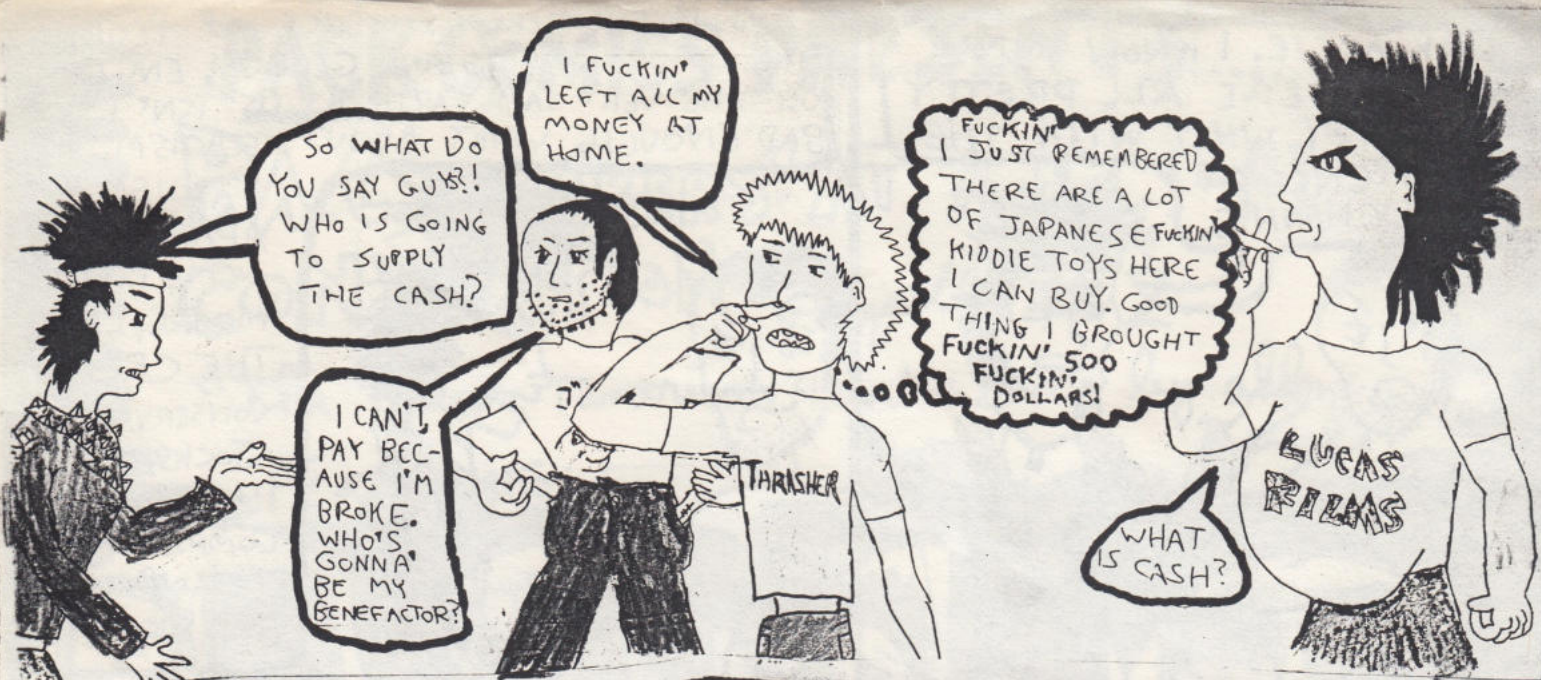 SO WHAT DO
YOU SAY GUYS?!
WHO IS GOING
TO SUPPLY
THE CASH?
I FUCKIN'
LEFT ALL MY
MONEY AT
HOME.
I CAN'T,
PAY BEC-
AUSE I'M
BROKE.
WHO'S
GONNA'
BE MY
BENEFACTOR?
FUCKIN'
I JUST REMEMBERED
THERE ARE A LOT
OF JAPANESE FUCKIN'
KIDDIE TOYS HERE
I CAN BUY. GOOD
THING I BROUGHT
FUCKIN' 500
FUCKIN'
DOLLARS!
THRASHER
WHAT
IS CASH?
LUCAS
FILMS